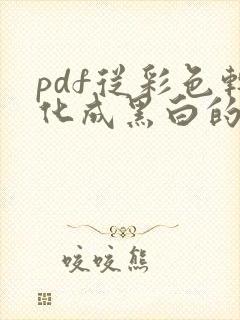 pdf從彩色轉
化成黑白的
咬咬熊